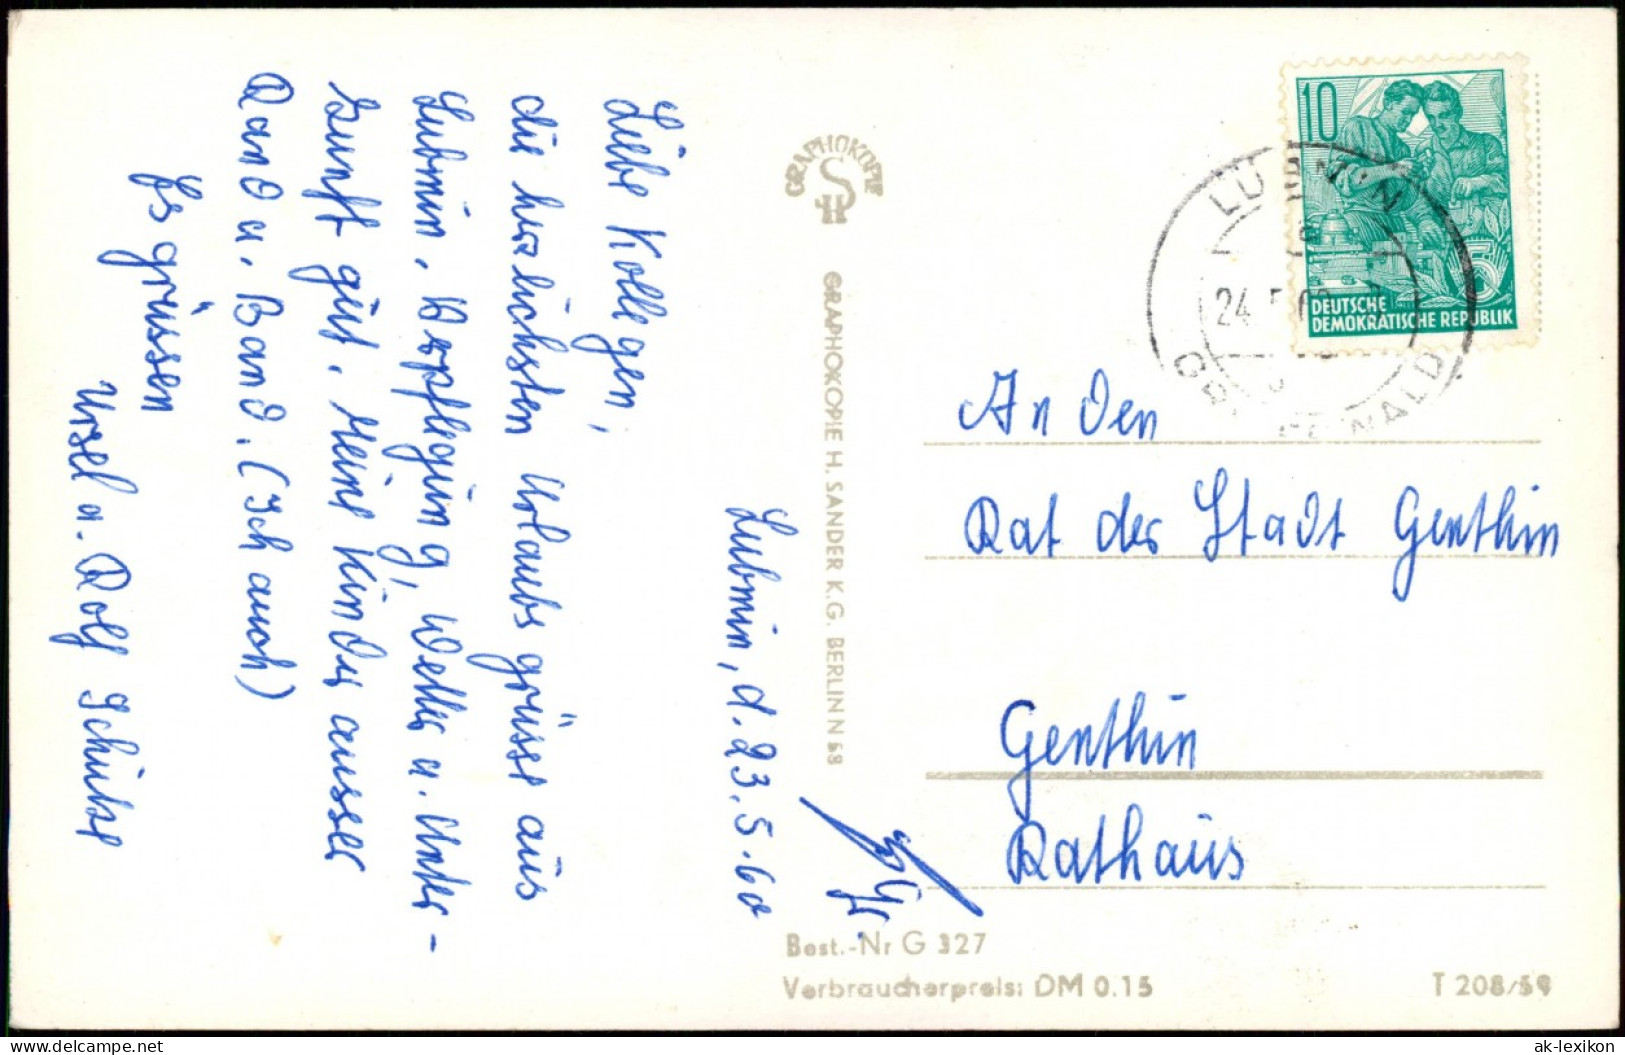 Lubmin, d. 23.5.60
Liebe Kollegen,
die herzlichsten Urlaubsgrüsse aus
Lubmin. Verpflegung, Wetter u. Unter-
kunft gut. Meine Kinder ausser
Rand u. Band. (Ich auch)
Es grüssen
Ursel u. Rolf Schulze
GRAPHOKOPIE
HS
GRAPHOKOPIE H. SANDER K.G. BERLIN N 58
10
DEUTSCHE
DEMOKRATISCHE REPUBLIK
5
LUBMIN
24.5.60
GREIFSWALD
An den
Rat der Stadt Genthin
Genthin
Rathaus
Best.-Nr G 327
Verbraucherpreis: DM 0.15
T 208/59
www.delcampe.net
ak-lexikon